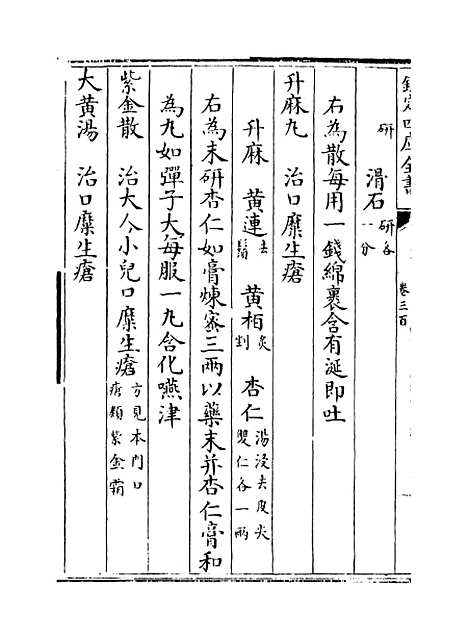 欽定四庫全書
卷三百
研　滑石研各一分
右為散每用一錢綿裹含有涎即吐
升麻丸　治口糜生瘡
升麻　黄連去鬚　黄柏炙剉　杏仁湯浸去皮尖雙仁各一兩
右為末研杏仁如膏煉蜜三兩以藥末并杏仁膏和
為丸如彈子大每服一丸含化嚥津
紫金散　治大人小兒口糜生瘡方見本門口瘡類紫金霜
大黄湯　治口糜生瘡